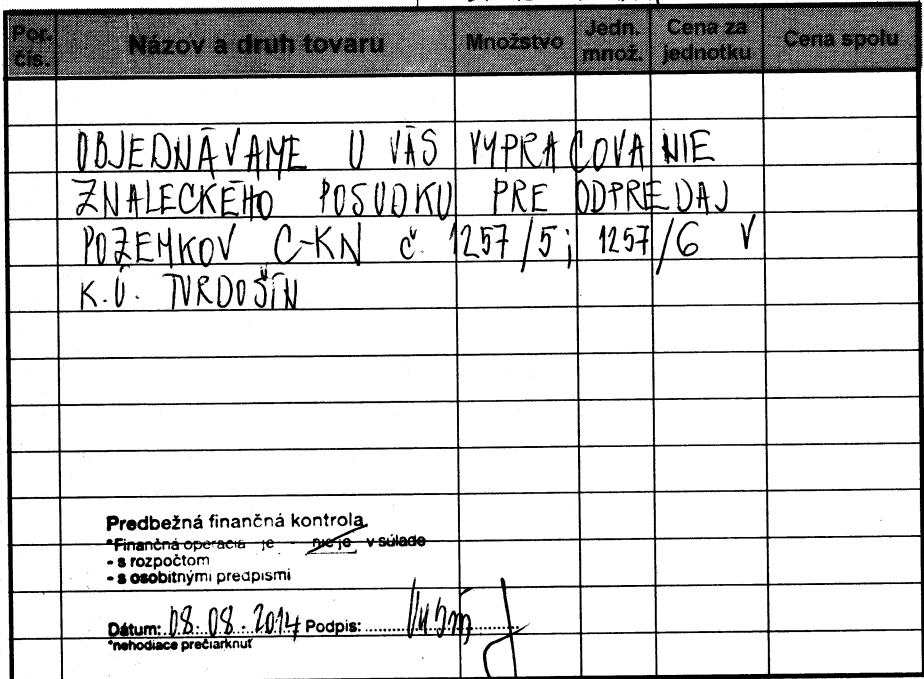 Por. čís. Názov a druh tovaru Množstvo Jedn. množ. Cena za jednotku Cena spolu
OBJEDNÁVAME U VÁS VYPRACOVANIE
ZNALECKÉHO POSUDKU PRE ODPREDAJ
POZEMKOV C-KN č. 1257/5; 1257/6 V
K.Ú. TVRDOŠÍN
Predbežná finančná kontrola
*Finančná operácia je - nie je v súlade
- s rozpočtom
- s osobitnými predpismi
Dátum: 08.08.2014 Podpis:
*nehodiace prečiarknuť